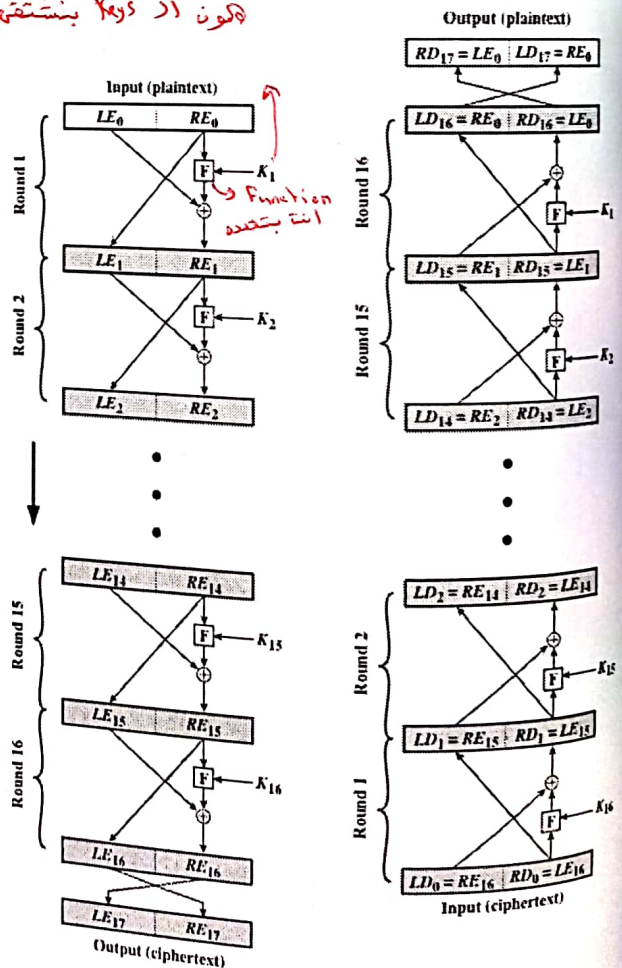 هون ال Keys بنستقي
Input (plaintext)
LE0 RE0
Round 1
F
K1
Function
انت بتحدده
LE1 RE1
Round 2
F
K2
LE2 RE2
LE14 RE14
Round 15
F
K15
LE15 RE15
Round 16
F
K16
LE16 RE16
LE17 RE17
Output (ciphertext)
Output (plaintext)
RD17 = LE0 LD17 = RE0
LD16 = RE0 RD16 = LE0
Round 16
F
K1
LD15 = RE1 RD15 = LE1
Round 15
F
K2
LD14 = RE2 RD14 = LE2
LD2 = RE14 RD2 = LE14
Round 2
F
K15
LD1 = RE15 RD1 = LE15
Round 1
F
K16
LD0 = RE16 RD0 = LE16
Input (ciphertext)